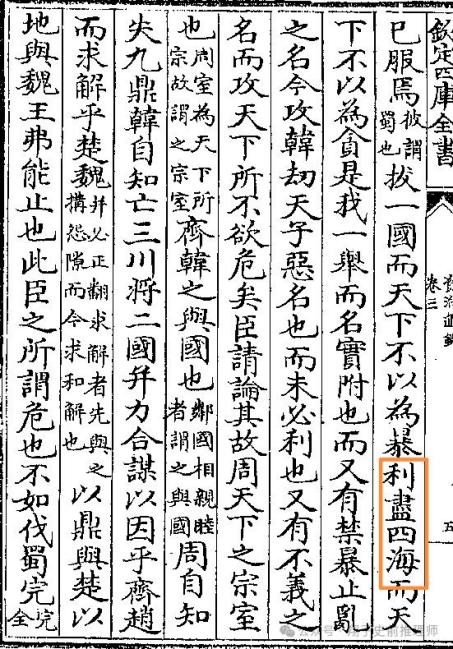 欽定四庫全書
卷三
五
已服焉彼謂蜀也拔一國而天下不以為暴利盡四海而天
下不以為貪是我一舉而名實附也而又有禁暴止亂
之名今攻韓劫天子惡名也而未必利也又有不義之
名而攻天下所不欲危矣臣請論其故周天下之宗室
也周室為天下所宗故謂之宗室齊韓之與國也鄰國相親睦者謂之與國周自知
失九鼎韓自知亡三川將二國并力合謀以因乎齊趙
而求解乎楚魏并必正翻求解者先與之搆怨隙而今求和解也以鼎與楚以
地與魏王弗能止也此臣之所謂危也不如伐蜀完完全
公众号 史前推理师